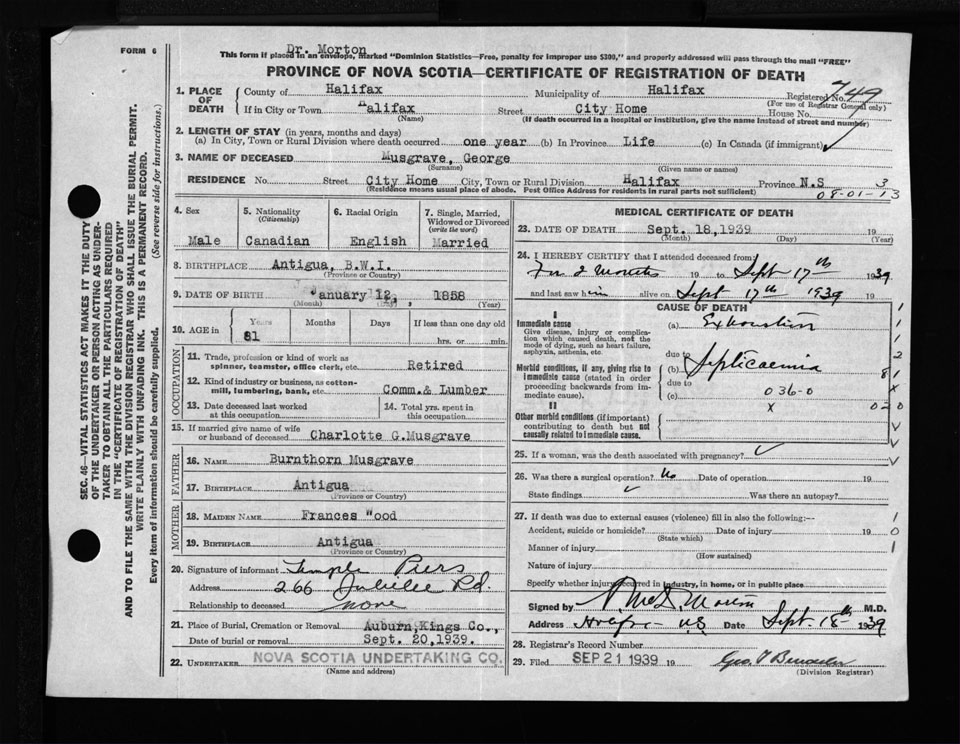 FORM 6
Dr. Morton
This form if placed in an envelope, marked "Dominion Statistics—Free, penalty for improper use $300," and properly addressed will pass through the mail "FREE"
PROVINCE OF NOVA SCOTIA—CERTIFICATE OF REGISTRATION OF DEATH
1. PLACE OF DEATH County of Halifax Municipality of Halifax Registered No. 749
(For use of Registrar General only)
If in City or Town Halifax Street City Home House No.
(Name) (If death occurred in a hospital or institution, give the name instead of street and number)
2. LENGTH OF STAY (in years, months and days)
(a) In City, Town or Rural Division where death occurred one year (b) In Province Life (c) In Canada (if immigrant)
3. NAME OF DECEASED Musgrave, George
(Surname) (Given name or names)
RESIDENCE No. Street City Home City, Town or Rural Division Halifax Province N.S 3
(Residence means usual place of abode. Post Office Address for residents in rural parts not sufficient) 08-01-13
4. Sex
Male
5. Nationality
(Citizenship)
Canadian
6. Racial Origin
English
7. Single, Married, Widowed or Divorced
(write the word)
Married
8. BIRTHPLACE Antigua, B.W.I.
(Province or Country)
9. DATE OF BIRTH January 12, 1858
(Month) (Day) (Year)
10. AGE in Years Months Days If less than one day old
81 hrs. or min.
OCCUPATION
11. Trade, profession or kind of work as
spinner, teamster, office clerk, etc. Retired
12. Kind of industry or business, as cotton-
mill, lumbering, bank, etc. Comm.& Lumber
13. Date deceased last worked at this occupation
14. Total yrs. spent in this occupation
15. If married give name of wife
or husband of deceased Charlotte G.Musgrave
FATHER
16. NAME Burnthorn Musgrave
17. BIRTHPLACE Antigua
(Province or Country)
MOTHER
18. MAIDEN NAME Frances Wood
19. BIRTHPLACE Antigua
(Province or Country)
20. Signature of informant Temple Piers
Address 266 Jubilee Rd.
Relationship to deceased none
21. Place of Burial, Cremation or Removal Auburn,Kings Co.,
Date of burial or removal Sept. 20,1939.
22. UNDERTAKER NOVA SCOTIA UNDERTAKING CO.
(Name and address)
MEDICAL CERTIFICATE OF DEATH
23. DATE OF DEATH Sept. 18,1939 19
(Month) (Day) (Year)
24. I HEREBY CERTIFY that I attended deceased from:
For 2 Months 19 to Sept 17th 1939
and last saw him alive on Sept 17th 1939 19
CAUSE OF DEATH
I
Immediate cause
Give disease, injury or complica-
tion which caused death, not the
mode of dying, such as heart failure,
asphyxia, asthenia, etc.
(a) Exhaustion
due to
Morbid conditions, if any, giving rise to
immediate cause (stated in order
proceeding backwards from im-
mediate cause).
(b) Septicaemia
due to
(c) 036-0
x
II
Other morbid conditions (if important)
contributing to death but not
causally related to immediate cause.
25. If a woman, was the death associated with pregnancy?
26. Was there a surgical operation? No Date of operation 19
State findings Was there an autopsy?
27. If death was due to external causes (violence) fill in also the following:—
Accident, suicide or homicide? Date of injury 19
(State which)
Manner of injury
(How sustained)
Nature of injury
Specify whether injury occurred in industry, in home, or in public place
Signed by Morton M.D.
Address Halifax N.S Date Sept 18th 1939
28. Registrar's Record Number
29. Filed SEP 21 1939 19
(Division Registrar)
SEC. 46—VITAL STATISTICS ACT MAKES IT THE DUTY
OF THE UNDERTAKER OR PERSON ACTING AS UNDER-
TAKER TO OBTAIN ALL THE PARTICULARS REQUIRED
IN THE "CERTIFICATE OF REGISTRATION OF DEATH"
AND TO FILE THE SAME WITH THE DIVISION REGISTRAR WHO SHALL ISSUE THE BURIAL PERMIT.
WRITE PLAINLY WITH UNFADING INK. THIS IS A PERMANENT RECORD.
Every item of information should be carefully supplied. (See reverse side for instructions.)